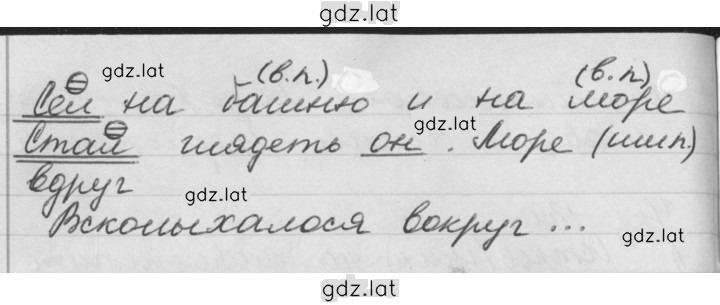 gdz.lat
gdz.lat (в.п.) (в.п)
Сел на башню и на море
Стал глядеть он. gdz.lat Море (им.п.)
вдруг gdz.lat
Всколыхалося вокруг ... gdz.lat
gdz.lat